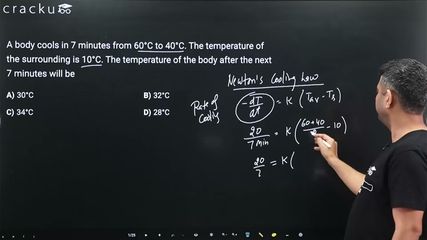 cracku
A body cools in 7 minutes from 60°C to 40°C. The temperature
of the surrounding is 10°C. The temperature of the body after the next
7 minutes will be
A) 30°C B) 32°C
C) 34°C D) 28°C
Newton's Cooling Law
Rate of Cooling
-dT/dt = K (Tav - Ts)
20/7 min = K (60+40/2 - 10)
20/7 = K (
1/25